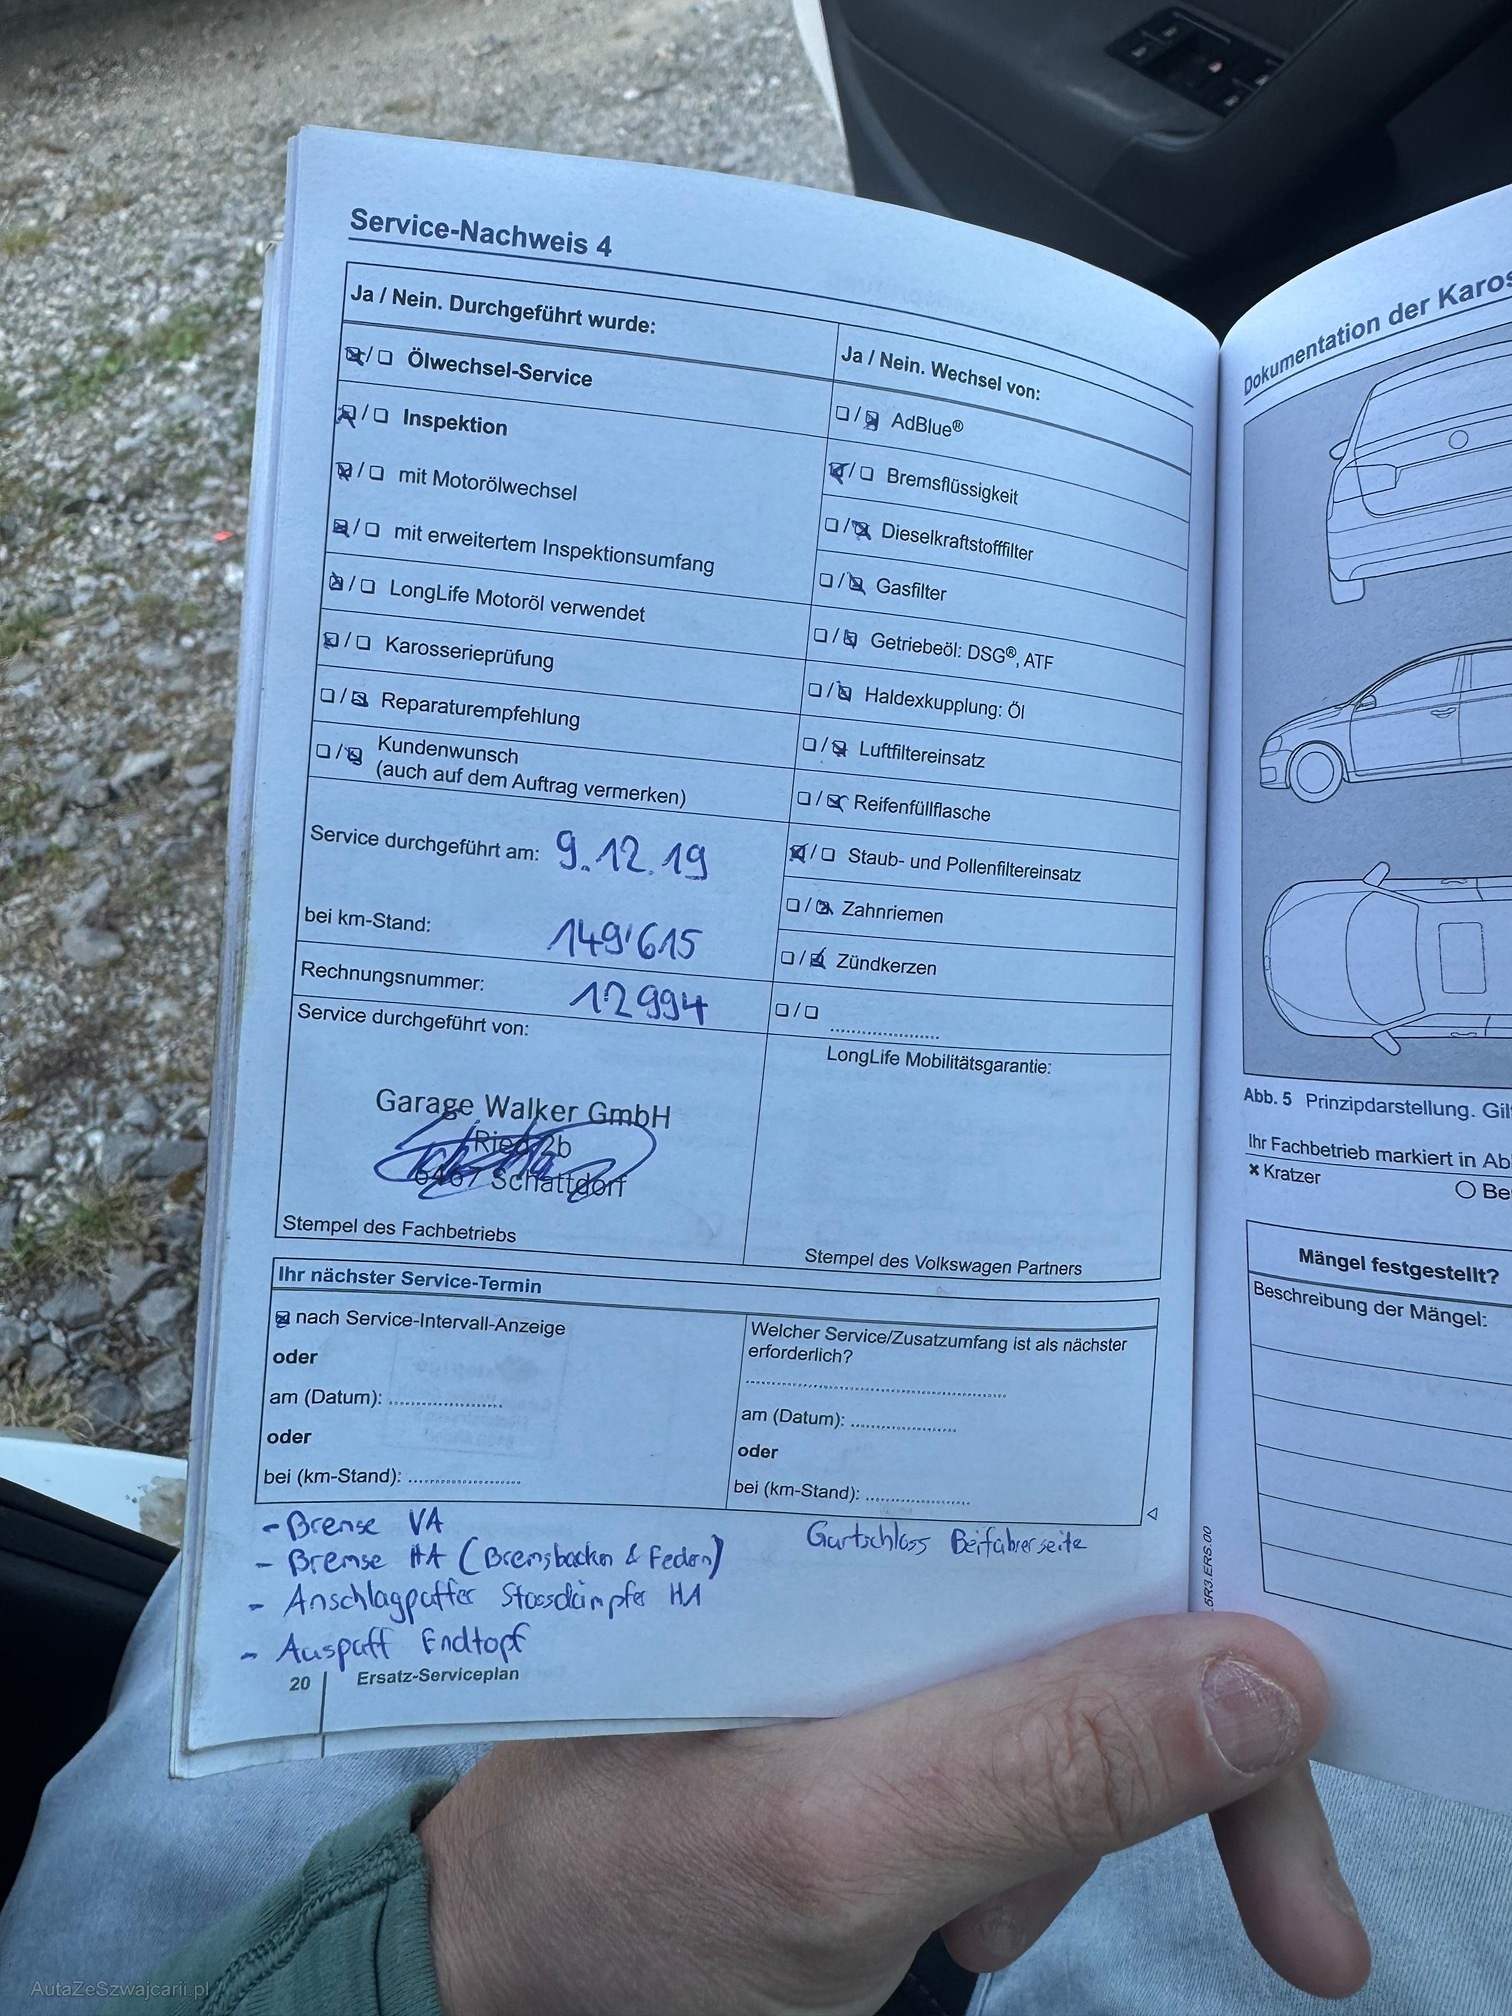 Service-Nachweis 4
Ja / Nein. Durchgeführt wurde:
Ölwechsel-Service
Inspektion
mit Motorölwechsel
mit erweitertem Inspektionsumfang
LongLife Motoröl verwendet
Karosserieprüfung
Reparaturempfehlung
Kundenwunsch
(auch auf dem Auftrag vermerken)
Service durchgeführt am: 9.12.19
bei km-Stand: 149'615
Rechnungsnummer: 12994
Service durchgeführt von:
Garage Walker GmbH
Ried 2b
6467 Schattdorf
Stempel des Fachbetriebs
Ja / Nein. Wechsel von:
AdBlue®
Bremsflüssigkeit
Dieselkraftstofffilter
Gasfilter
Getriebeöl: DSG®, ATF
Haldexkupplung: Öl
Luftfiltereinsatz
Reifenfüllflasche
Staub- und Pollenfiltereinsatz
Zahnriemen
Zündkerzen
LongLife Mobilitätsgarantie:
Stempel des Volkswagen Partners
Ihr nächster Service-Termin
nach Service-Intervall-Anzeige
oder
am (Datum):
oder
bei (km-Stand):
Welcher Service/Zusatzumfang ist als nächster
erforderlich?
am (Datum):
oder
bei (km-Stand):
- Bremse VA
- Bremse HA (Bremsbacken & Federn)
- Anschlagpuffer Stossdämpfer HA
- Auspuff Endtopf
Gurtschloss Beifahrerseite
20 Ersatz-Serviceplan
Dokumentation der Karos
Abb. 5 Prinzipdarstellung. Gil
Ihr Fachbetrieb markiert in Ab
x Kratzer
Be
Mängel festgestellt?
Beschreibung der Mängel:
5R3.ERS.00
AutaZeSzwajcarii.pl